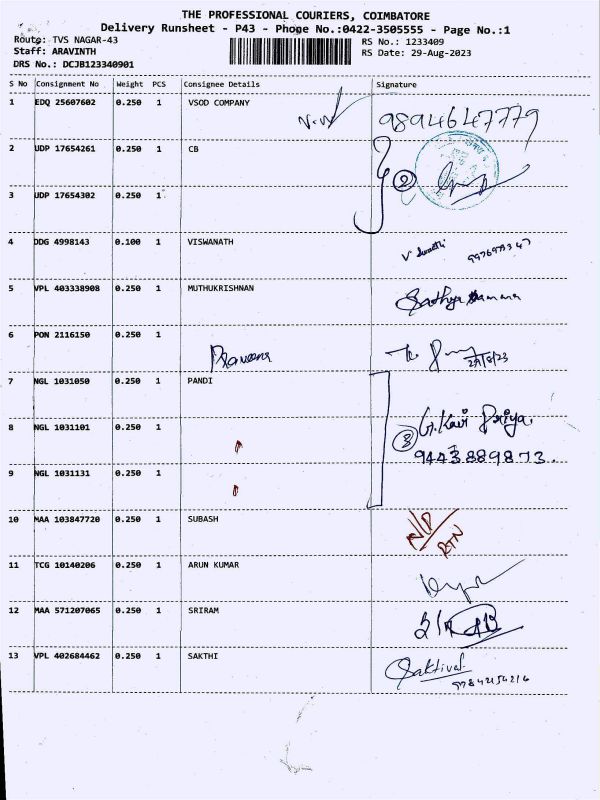 THE PROFESSIONAL COURIERS, COIMBATORE
Delivery Runsheet - P43 - Phone No.:0422-3505555 - Page No.:1
Route: TVS NAGAR-43
Staff: ARAVINTH
DRS No.: DCJB123340901
RS No.: 1233409
RS Date: 29-Aug-2023
S No Consignment No Weight PCS Consignee Details Signature
1 EDQ 25607602 0.250 1 VSOD COMPANY 9894647779
2 UDP 17654261 0.250 1 CB
2
3 UDP 17654302 0.250 1
4 DDG 4998143 0.100 1 VISWANATH
5 VPL 403338908 0.250 1 MUTHUKRISHNAN
6 PON 2116150 0.250 1 Praveena 29/8/23
7 NGL 1031050 0.250 1 PANDI
8 NGL 1031101 0.250 1 G.Kavi Priya.
3 9443889873.
9 NGL 1031131 0.250 1
10 MAA 103847720 0.250 1 SUBASH N/P RTN
11 TCG 10140206 0.250 1 ARUN KUMAR
12 MAA 571207065 0.250 1 SRIRAM
13 VPL 402684462 0.250 1 SAKTHI Saktivel